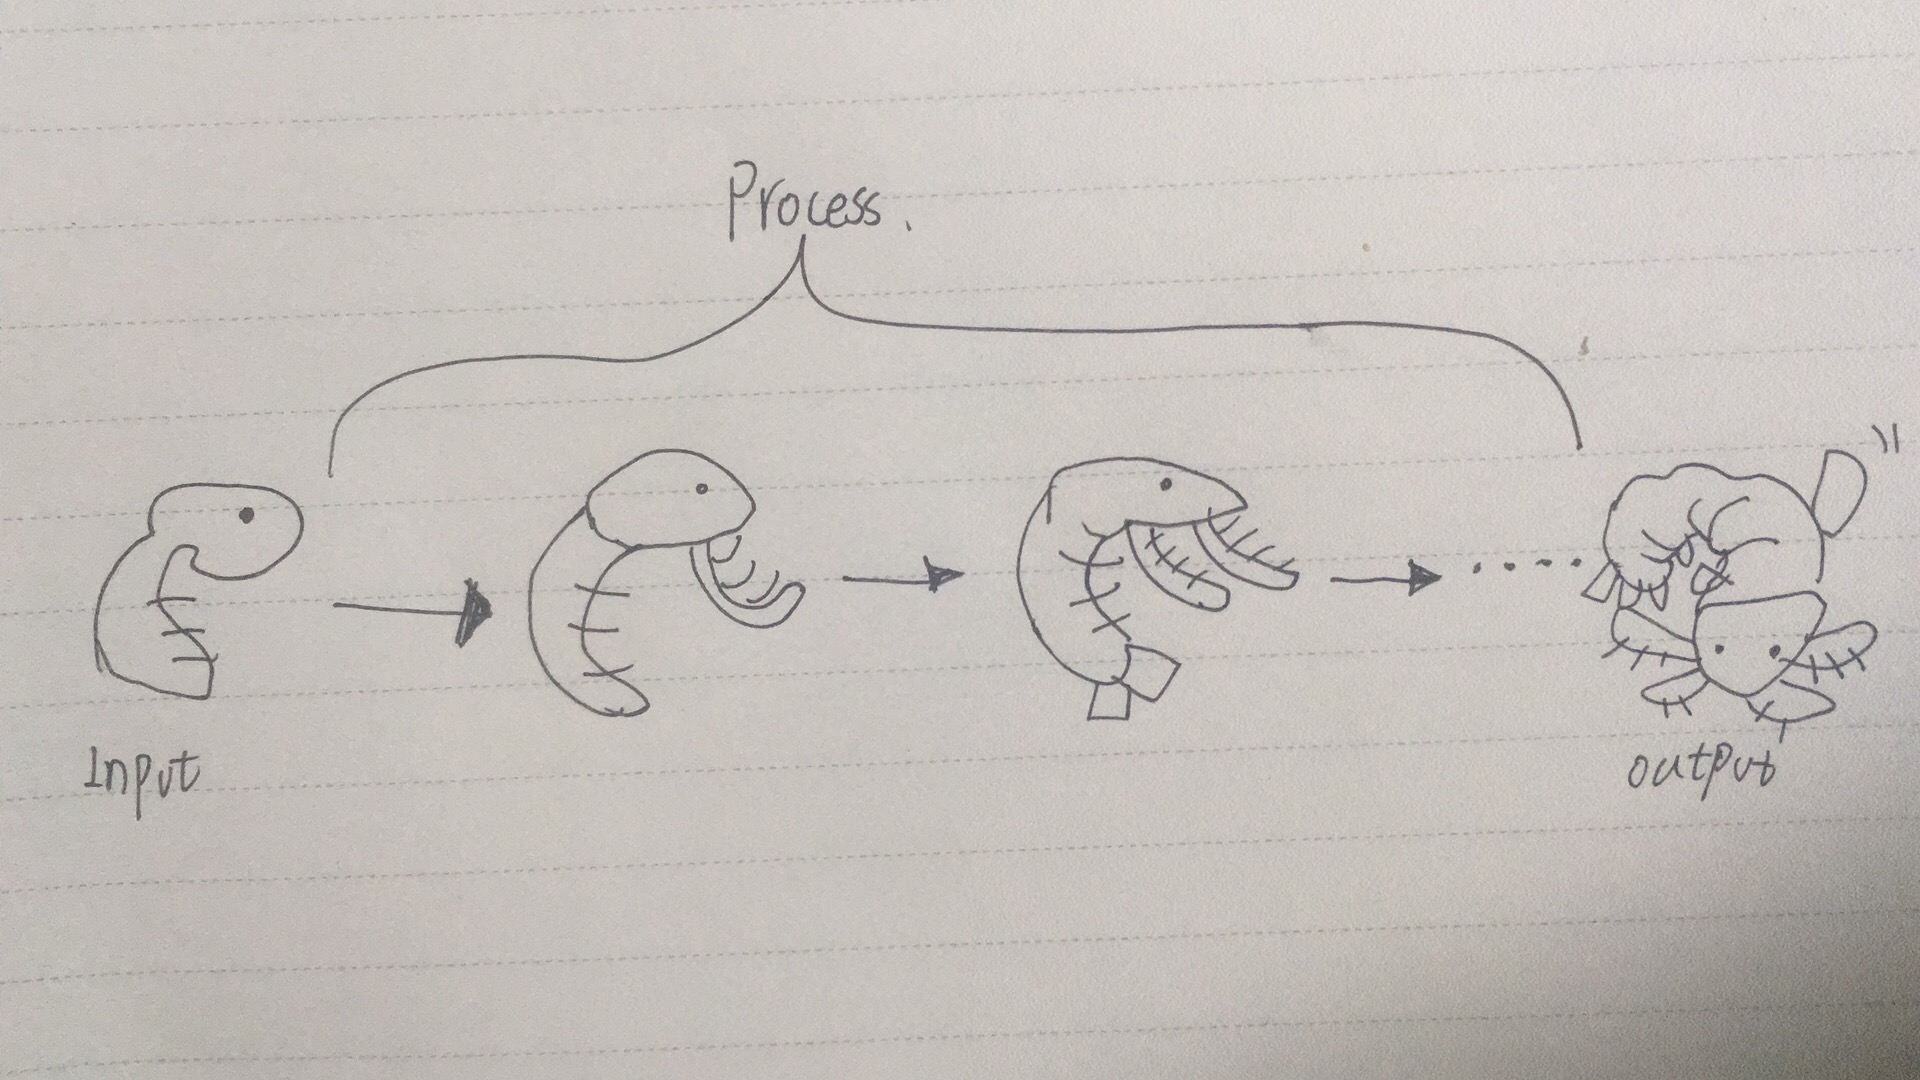 Process.
Input
output